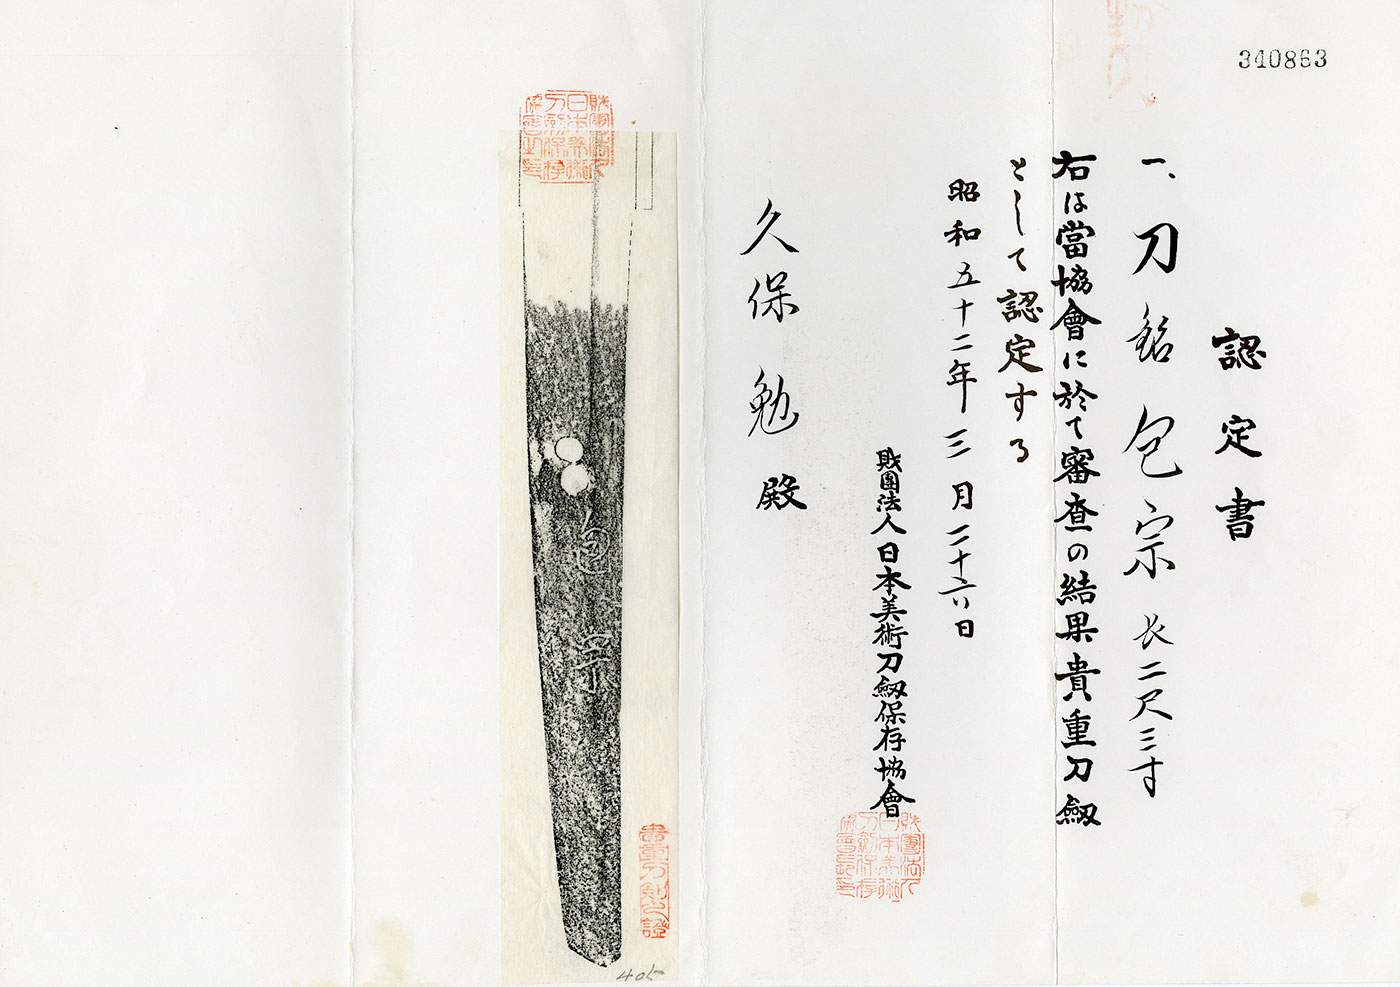 340863
認定書
一、刀 銘 包宗 长二尺三寸
右は當協會に於て審査の結果貴重刀劔
として認定する
昭和五十二年三月二十六日
財團法人日本美術刀劔保存協會
財團法人日本美術刀劔保存協會長之印
久保 勉 殿
財團法人日本美術刀劔保存協會之印
包宗
貴重刀劔之證
405